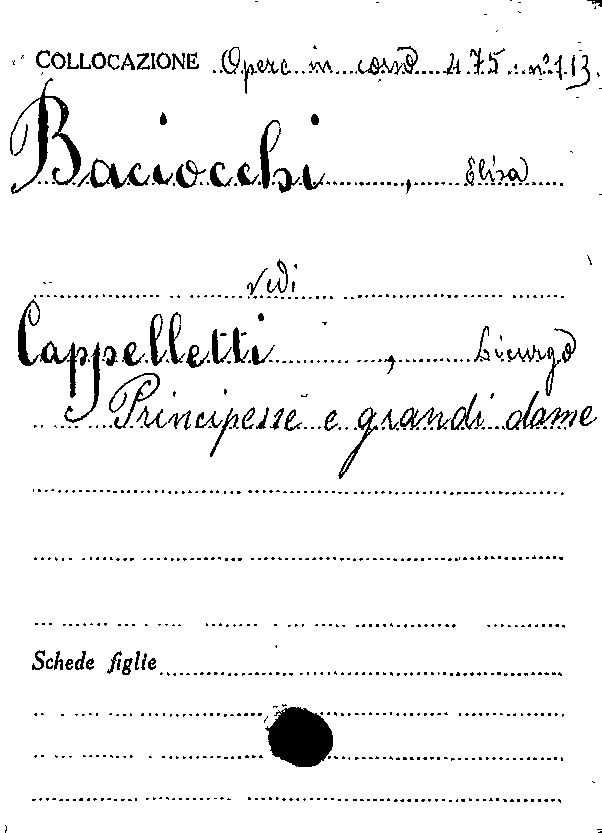 COLLOCAZIONE Opere in corso 475. nº 113.
Baciocchi, Elisa
vedi
Cappelletti, Licurgo
Principesse e grandi dame
Schede figlie